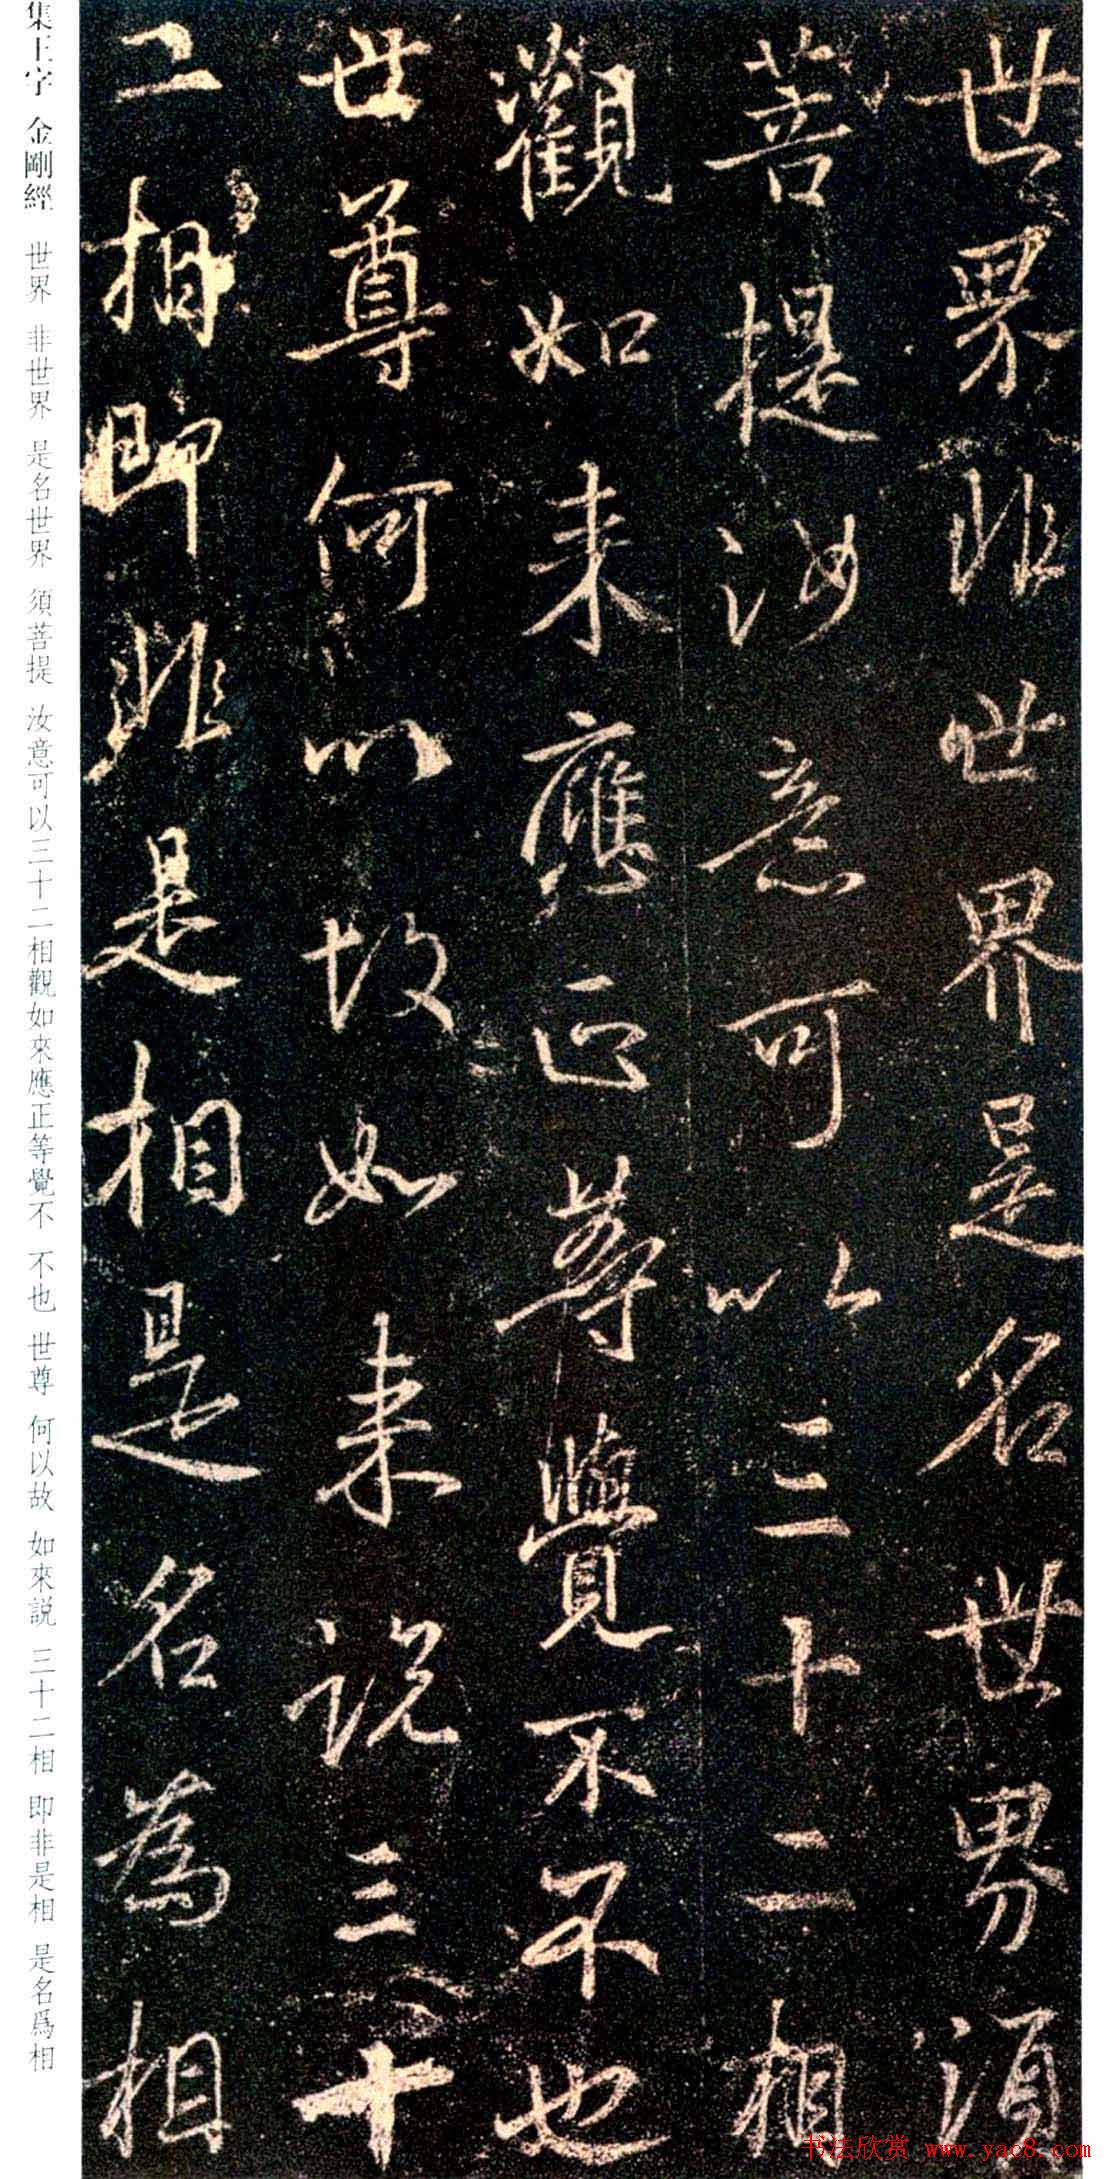 世界非世界是名世界須
菩提汝意可以三十二相
觀如來應正等覺不不也
世尊何以故如來說三十
二相即非是相是名為相
集王字 金剛經 世界 非世界 是名世界 須菩提 汝意可以三十二相觀如來應正等覺不 不也 世尊 何以故 如來説 三十二相 即非是相 是名爲相
书法欣赏 www.yac8.com